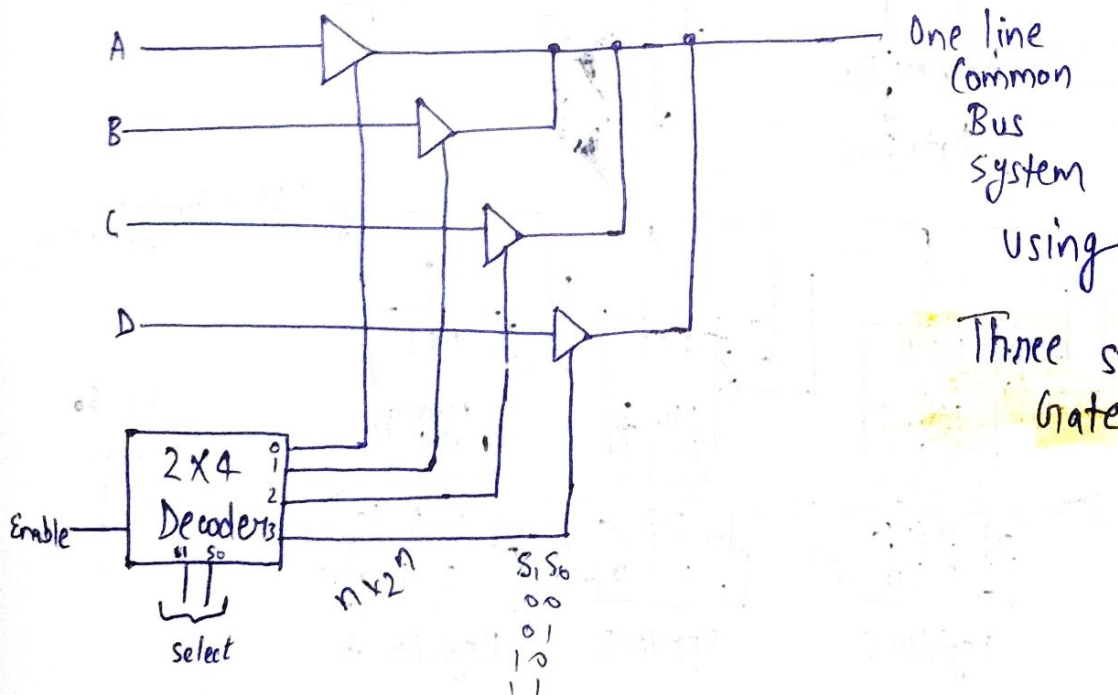 A
One line
Common
Bus
System
B
C
using
D
Three s
Gate
2X4
Decoder
0
1
2
3
Enable
S1 S0
select
n×2^n
S1 S0
00
01
10
11